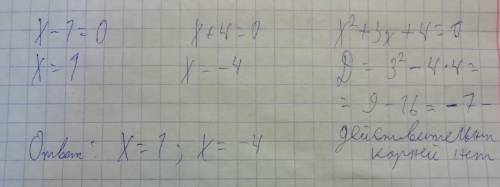 x-1=0 x+4=0 x²+3x+4=0
x=1 x=-4 D=3²-4·4=
=9-16=-7-
Ответ: x=1; x=-4 действительн
корней нет